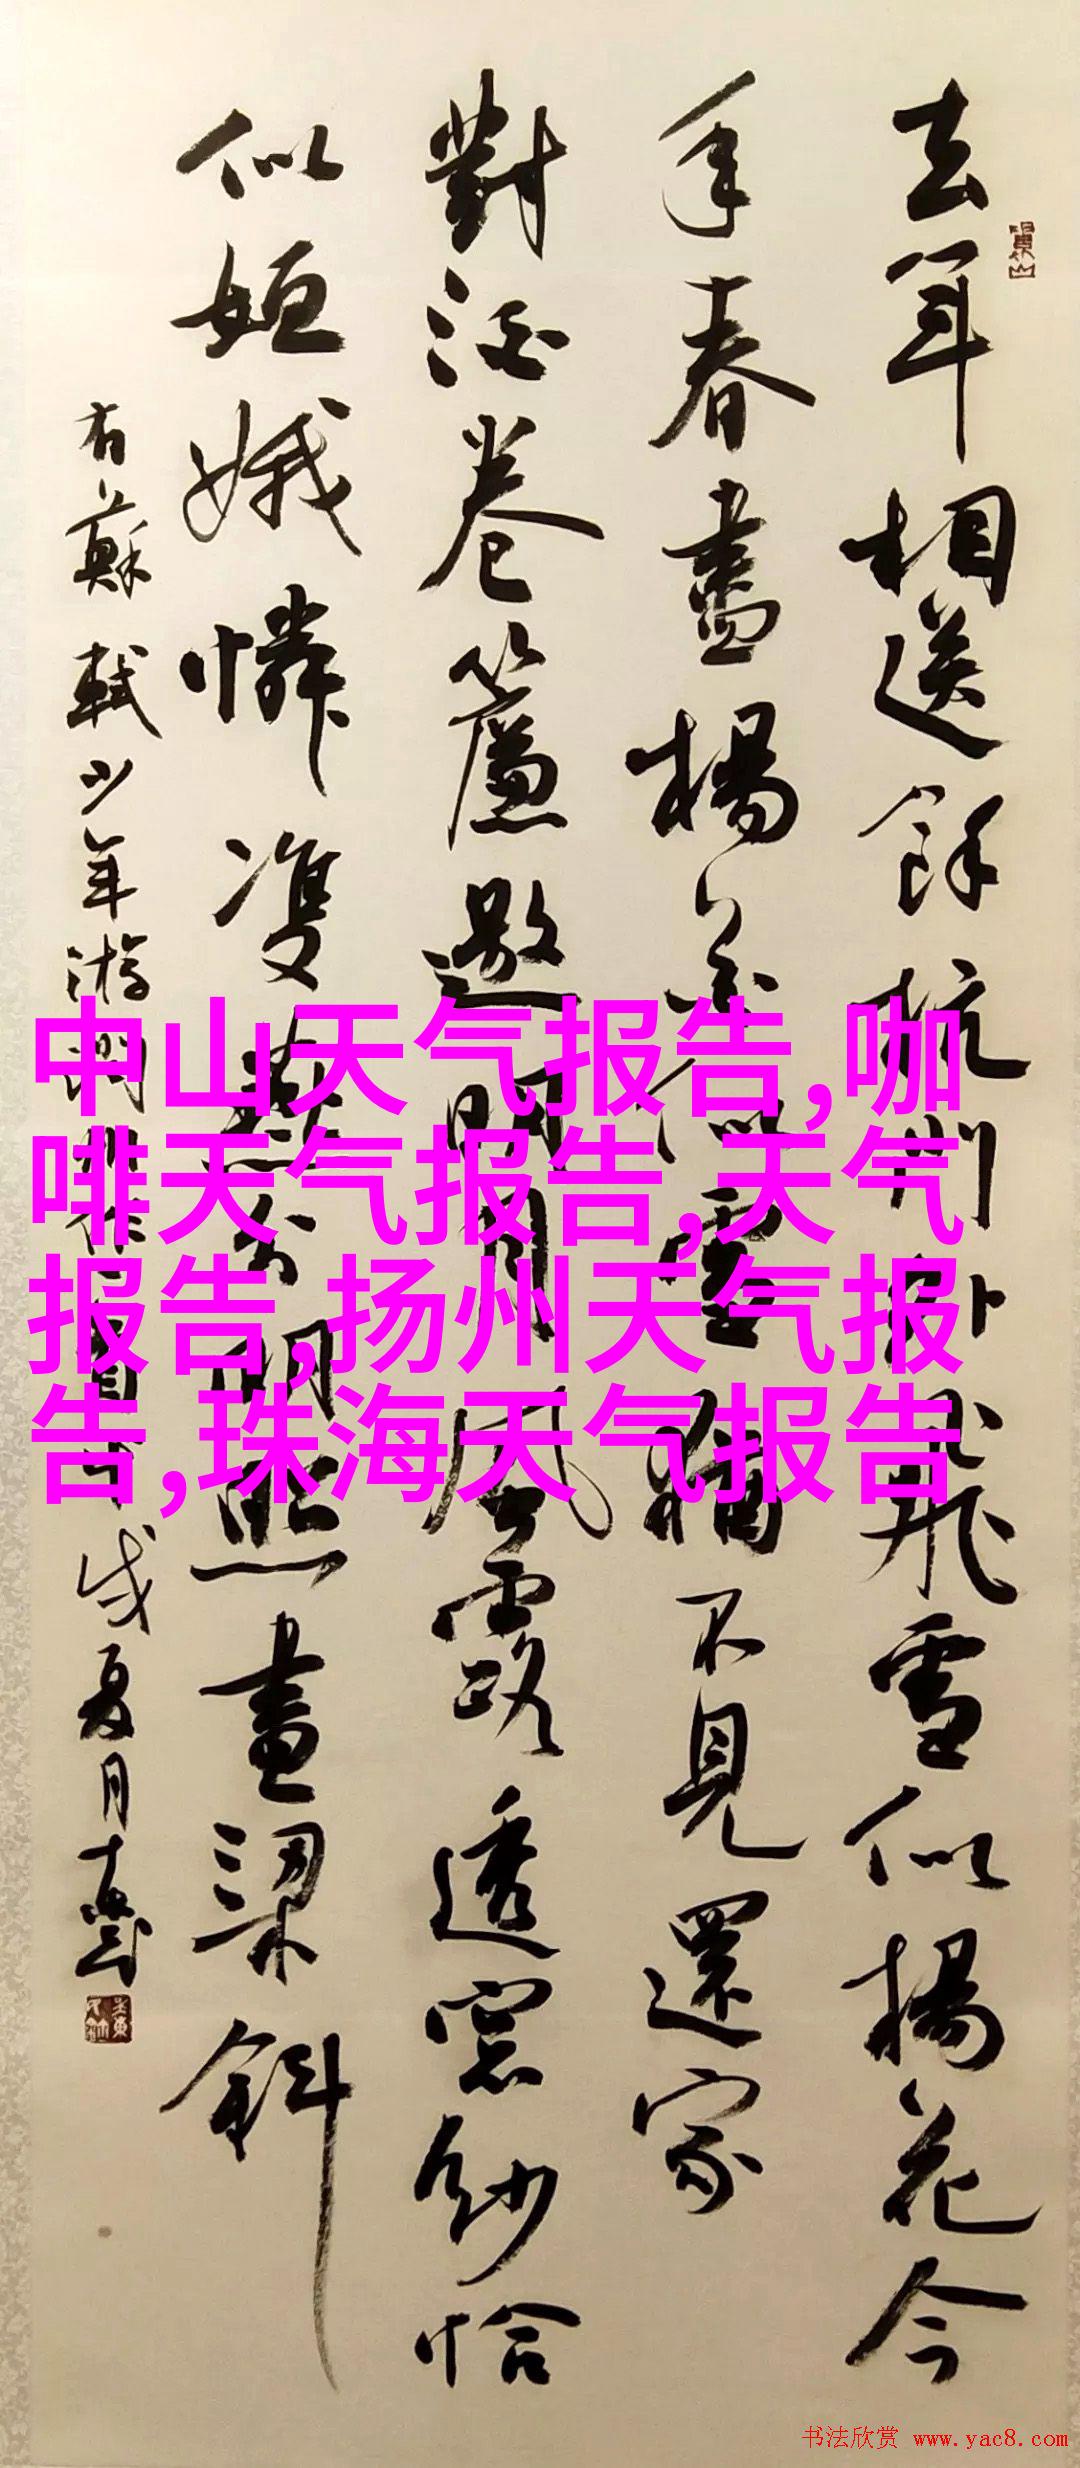 去年相送餘杭門外飛雪似楊花今
年春盡楊花似雪猶不見還家
對酒卷簾邀明月風露透窗紗恰
似姮娥憐雙燕分明照畫梁斜
右蘇軾少年游潤州作
戌夏月
中山天气报告,咖
啡天气报告,天气
报告,扬州天气报
告,珠海天气报告
书法欣赏 www.yac8.com